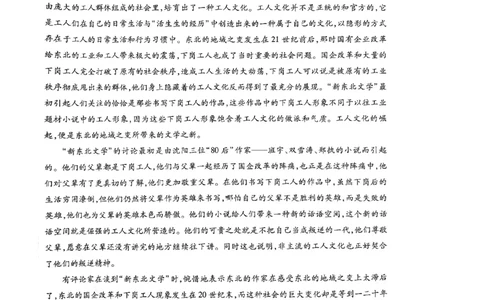 由庞大的工人群体组成的社会里,培育出了一种工人文化。工人文化并不是正统的和官方的,它
是工人们在自己的日常生活与“活生生的经历”中创造出来的一种属于自己的文化,以隐形的方式
存在于工人的日常生活和行为习惯中。东北的地域之变发生在 21 世纪前后,那时国有企业改革
给东北的工业和工人带来极大的震荡,下岗工人也成了当时重要的社会问题。国企改革和大量的
下岗工人完全打破了原有的社会秩序,造成工人生活的大动荡,下岗工人可以说是被原有的工业
秩序彻底甩出来的群体,他们身上隐藏着的工人文化反而得到了最充分的展现。“新东北文学”最
初引起人们关注的恰恰是那些书写下岗工人的作品,这些作品中的下岗工人形象不同于以往工业
题材小说中的工人形象,因为这些下岗工人形象饱含着工人文化的做派和气质。工人文化的崛
起,便是东北的地域之变所带来的文学之新。
“新东北文学”的讨论最初是由沈阳三位“80 后”作家——班宇、双雪涛、郑执的小说而引起
的。他们的父辈都是下岗工人,他们与父辈一起经历了国企改革的阵痛,也正是在这种阵痛中,他
们对父辈有了更真切的了解,他们更加敬重父辈。在他们书写下岗工人的作品中,虽然下岗后的
生活穷困潦倒,但他们仍然将父辈作为英雄来书写,哪怕自己的父辈不是胜利的英雄,而是失败的
英雄,他们也为父辈的英雄本色而骄傲。他们的小说给人们带来一种新的话语空间,这个新的话
语空间就是倔强的工人文化所营造的。他们的可贵之处就是不把自己当成叛逆的一代,他们尊敬
父辈,愿意在父辈还没有讲完的地方继续往下讲。同时这也说明,非主流的工人文化也正好契合
了他们的叛逆精神。
有评论家在谈到“新东北文学”时,惋惜地表示东北的作家在感受东北的地域之变上大滞后
了,东北的国企改革和下岗工人现象发生在 20 世纪末,而这种社会的巨大变化却是等到一二十年